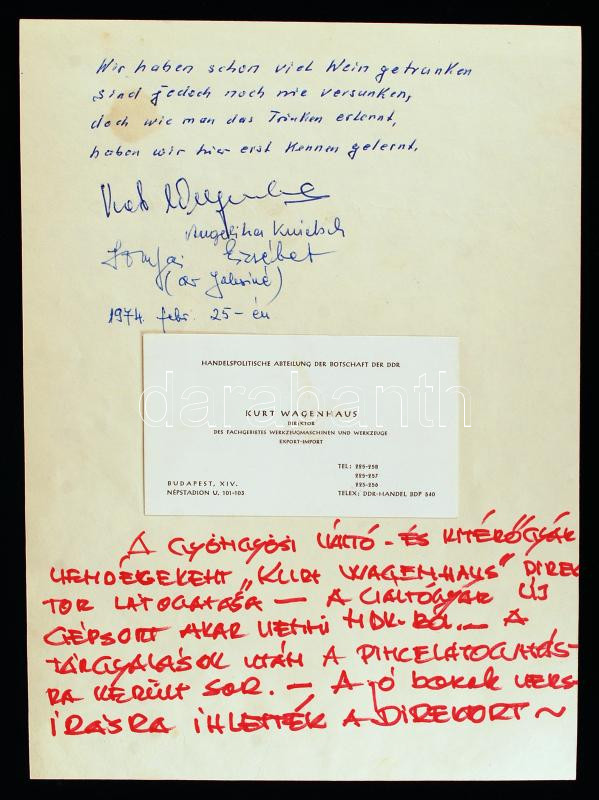 Wir haben schon viel Wein getrunken
sind jedoch noch nie versunken,
doch wie man das Trinken erlernt,
haben wir hier erst kennen gelernt.
Angelika
Erzsébet
1974. febr. 25-én
HANDELSPOLITISCHE ABTEILUNG DER BOTSCHAFT DER DDR
KURT WAGENHAUS
DIREKTOR
DES FACHGEBIETES WERKZEUGMASCHINEN UND WERKZEUGE
EXPORT-IMPORT
TEL: 225-258
225-257
225-256
BUDAPEST, XIV.
NÉPSTADION U. 101-103
TELEX: DDR-HANDEL BDP 540
darabanth
A GYÖNGYÖSI VÁLTÓ- ÉS KITÉRŐGYÁR
VENDÉGEKÉNT „KURT WAGENHAUS" DIREK
TOR LÁTOGATÁSA — A VÁLTÓGYÁR ÚJ
GÉPSORT AKAR VENNI NDK-BÓL. — A
TÁRGYALÁSOK UTÁN A PINCELÁTOGATÁS-
RA KERÜLT SOR. — A JÓ BOROK VERS-
ÍRÁSRA IHLETTÉK A DIREKTORT ~